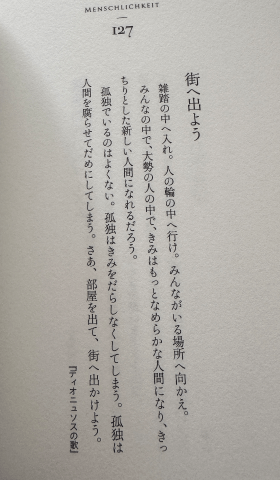 MENSCHLICHKEIT
127
街へ出よう
雑踏の中へ入れ。人の輪の中へ行け。みんながいる場所へ向かえ。
みんなの中で、大勢の人の中で、きみはもっとなめらかな人間になり、きっ
ちりとした新しい人間になれるだろう。
孤独でいるのはよくない。孤独はきみをだらしなくしてしまう。孤独は
人間を腐らせてだめにしてしまう。さあ、部屋を出て、街へ出かけよう。
『ディオニュソスの歌』